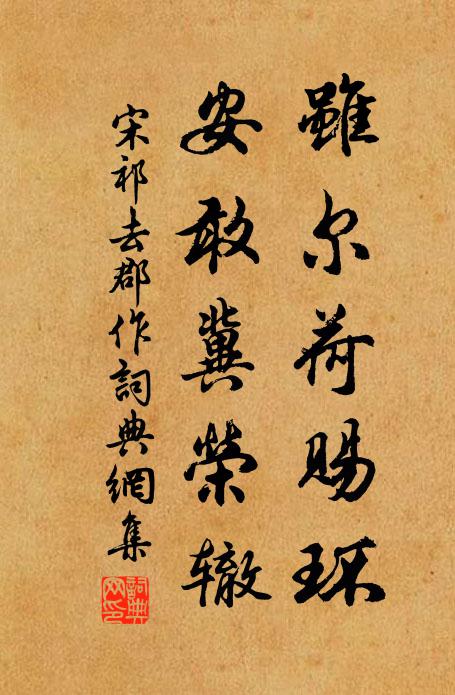 雖尔荷賜环
安敢冀榮辙
宋祁去郡作詞典網集
詞典网印